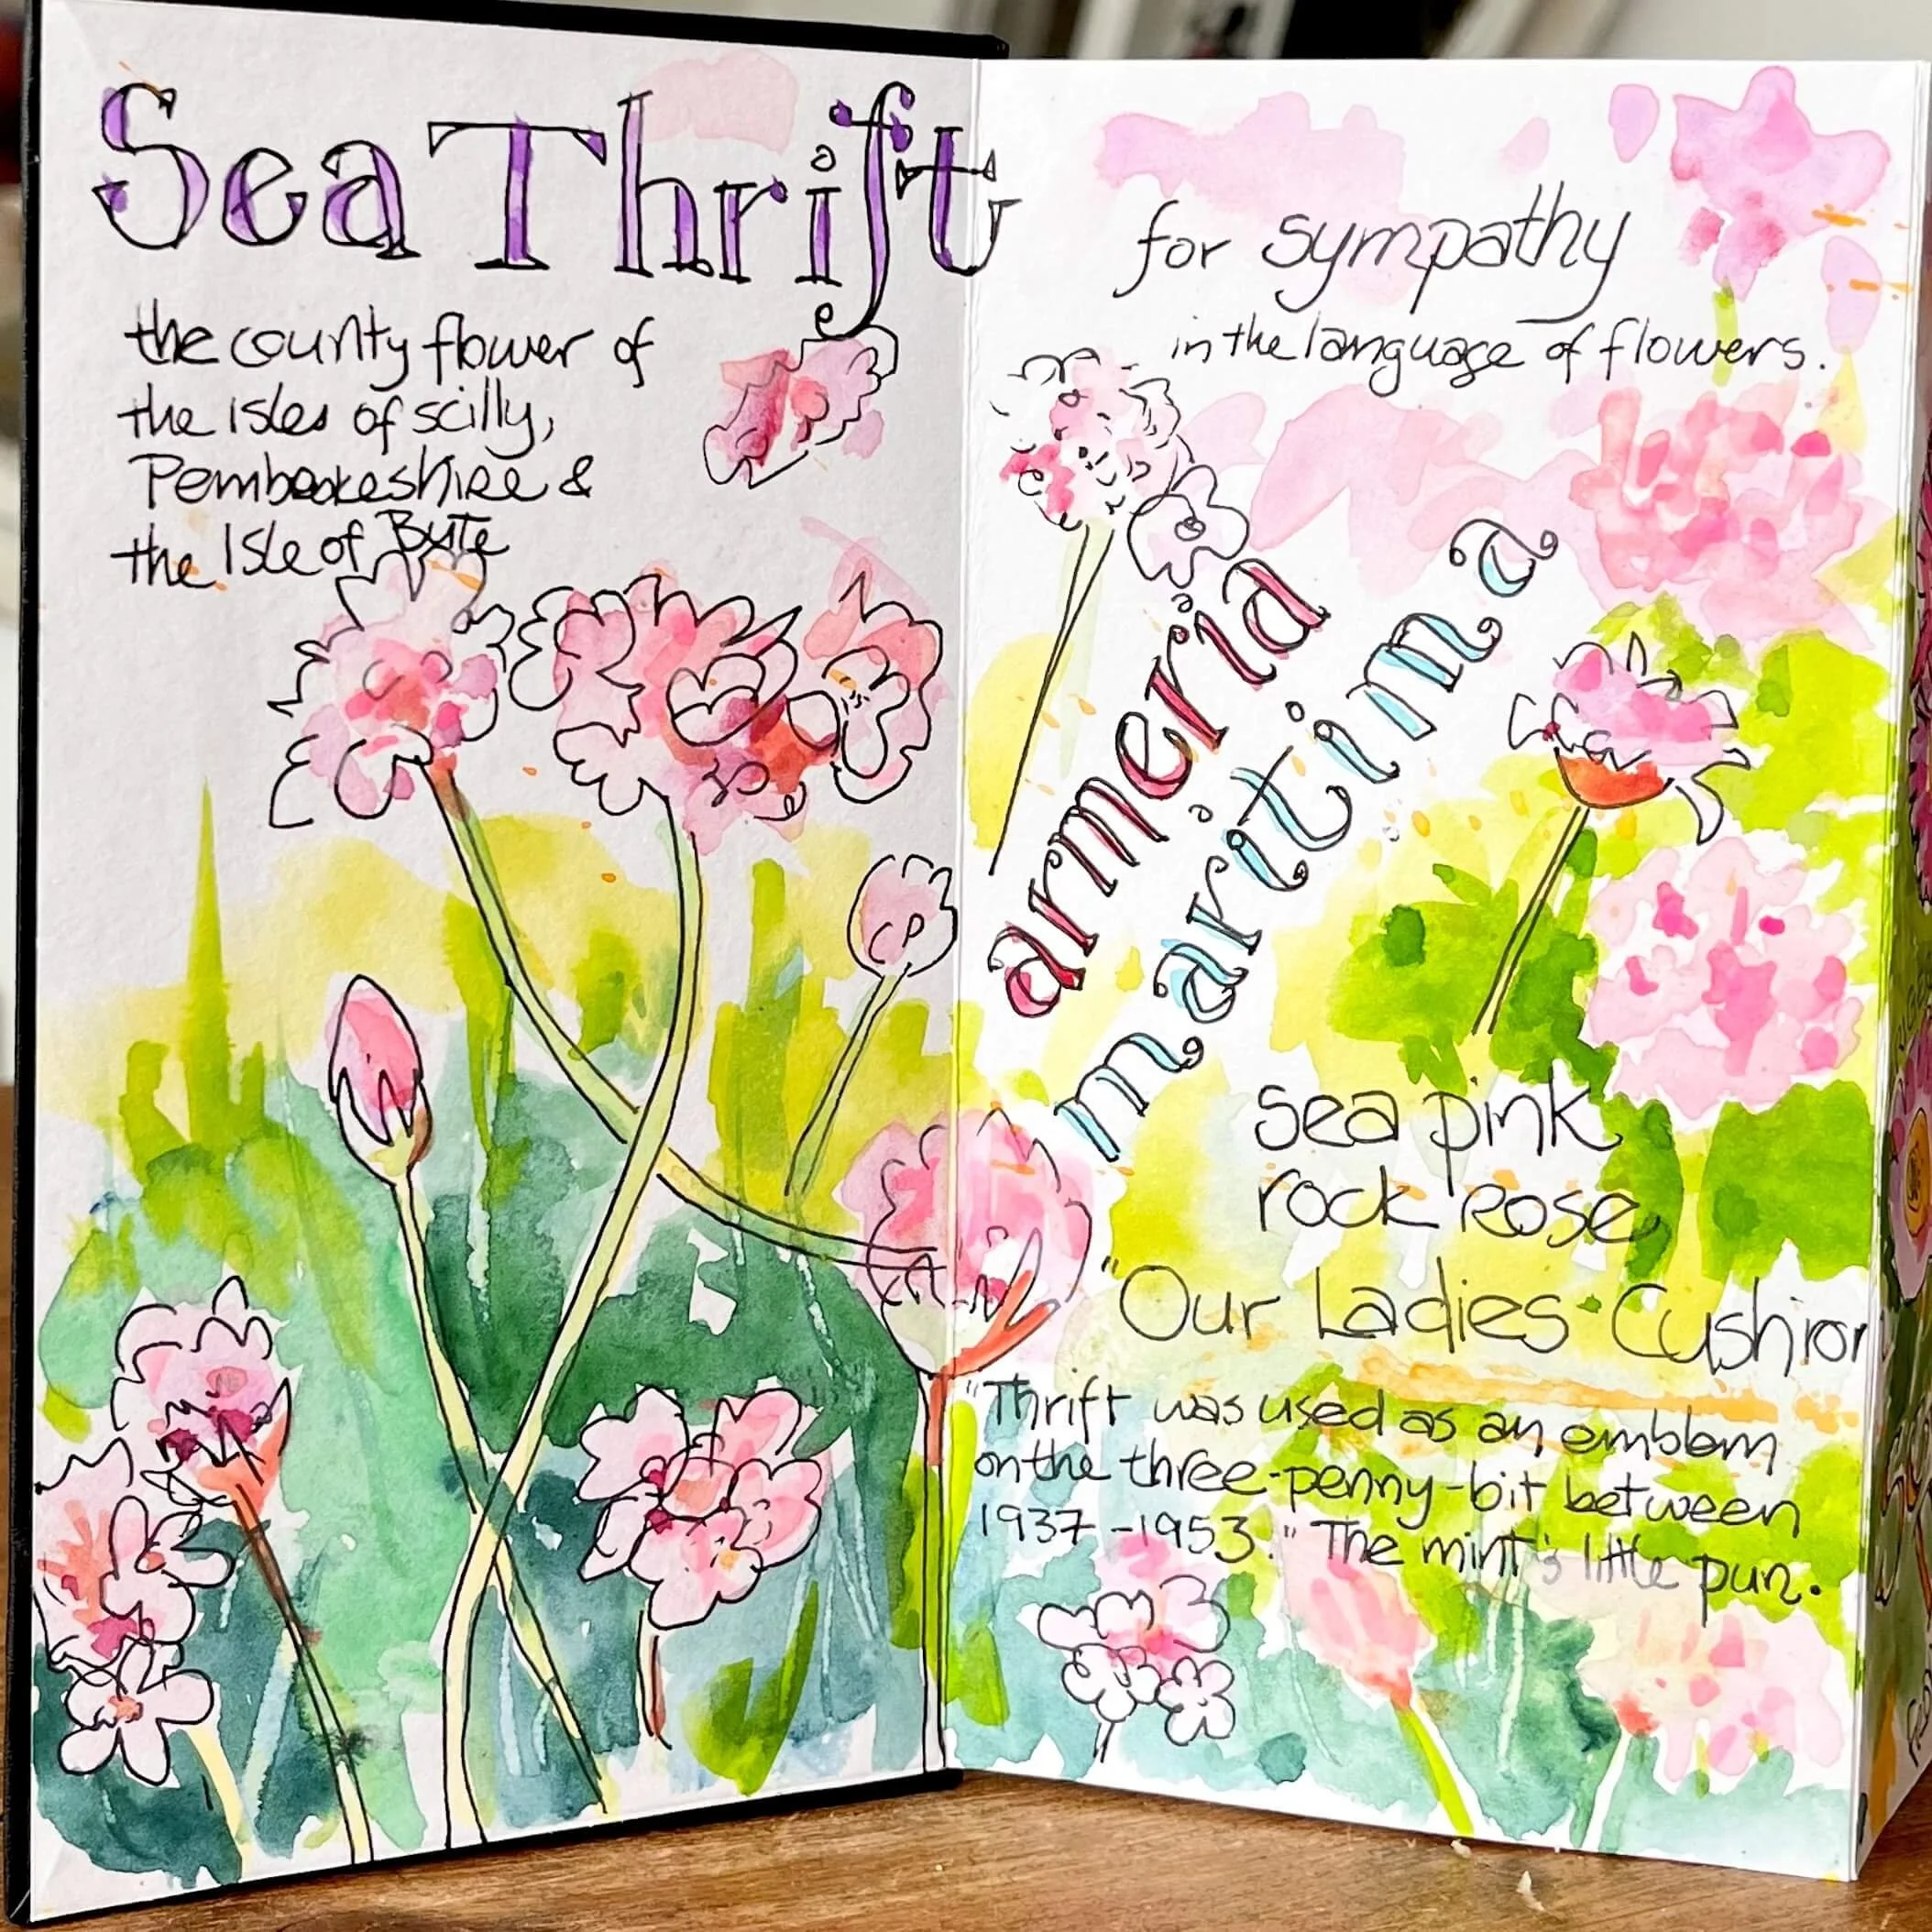 Sea Thrift
the county flower of
the isles of scilly,
Pembrokeshire &
the Isle of Bute
for sympathy
in the language of flowers.
armeria
maritima
sea pink
rock rose
"Our Ladies Cushion
"Thrift was used as an emblem
on the three-penny-bit between
1937-1953." The mint's little pun.